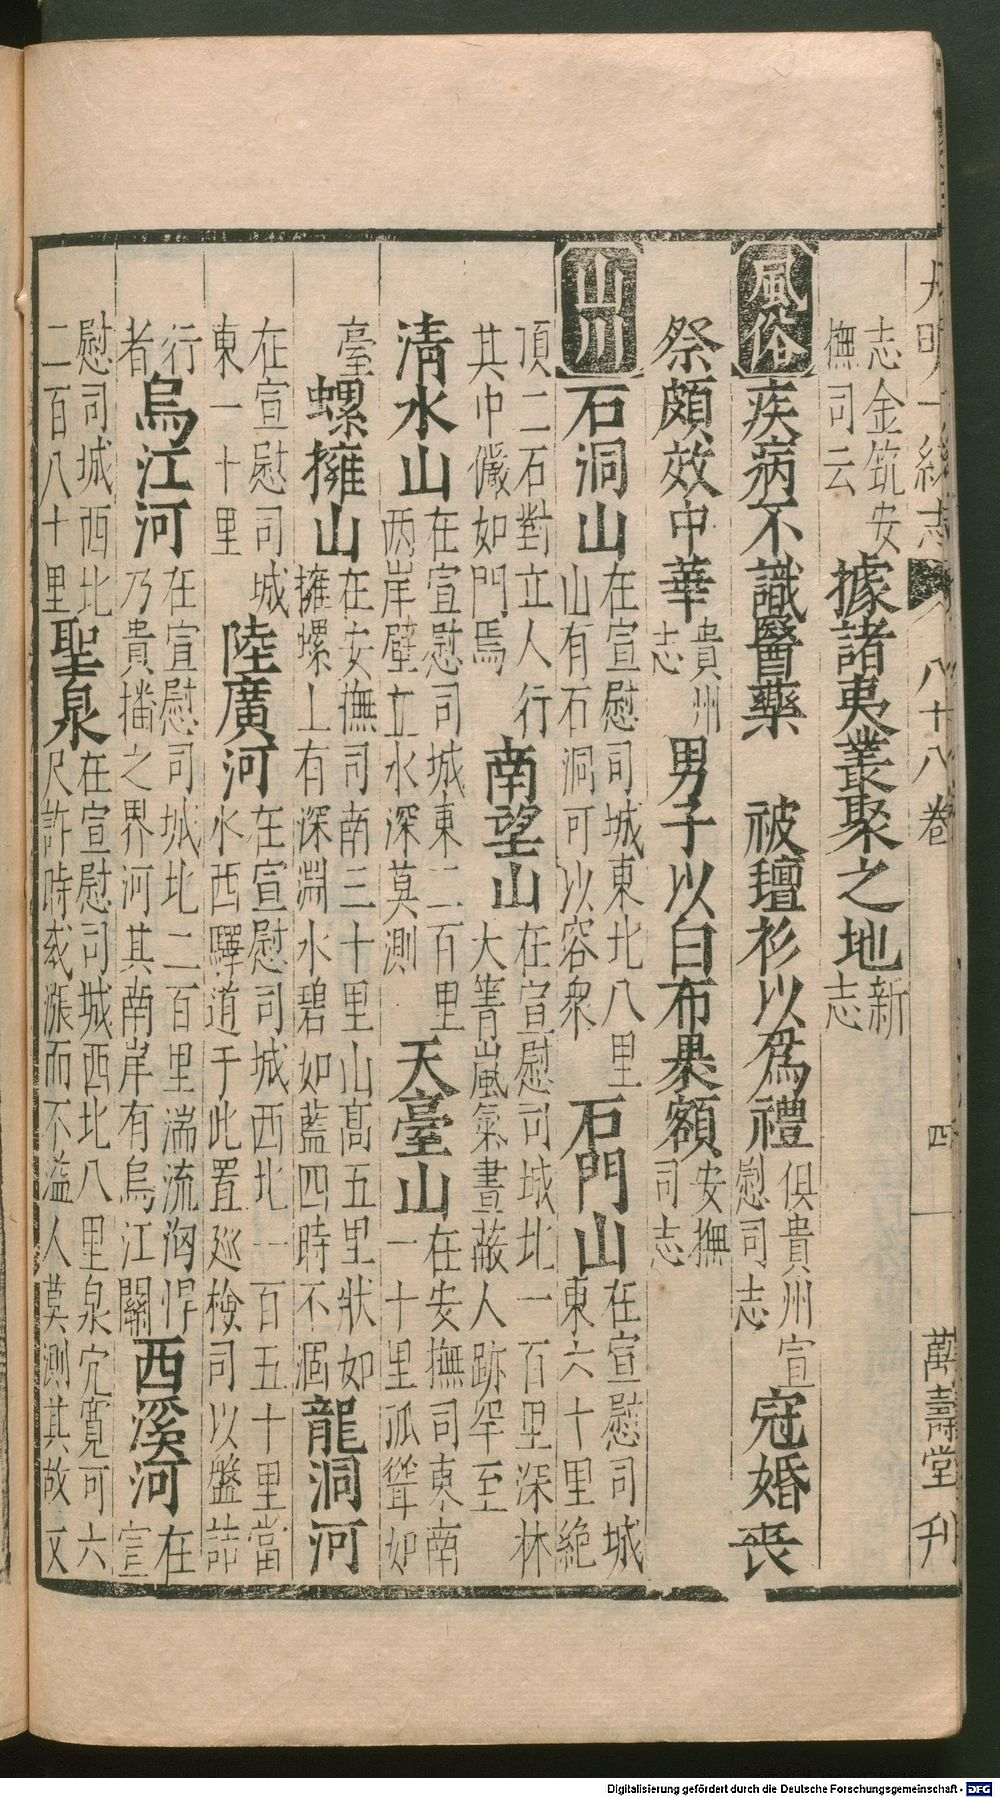 大明一統志 八十八卷 四 萬壽堂刋
志金筑安撫司云據諸夷叢聚之地新志
風俗疾病不識醫藥 被氊衫以爲禮俱貴州宣慰司志冠婚喪
祭頗效中華貴州志男子以白布裹額安撫司志
山川石洞山在宣慰司城東北八里山有石洞可以容衆石門山在宣慰司城東六十里絶
頂二石對立人行其中儼如門焉南望山在宣慰司城北一百里深林大箐嵐氣晝蔽人跡罕至
清水山在宣慰司城東二百里两岸壁立水深莫測天臺山在安撫司東南一十里孤聳如
臺螺擁山在安撫司南三十里山高五里狀如擁螺上有深淵水碧如藍四時不涸龍洞河
在宣慰司城東一十里陸廣河在宣慰司城西北一百五十里當水西驛道于此置廵檢司以盤詰
行者烏江河在宣慰司城北二百里湍流洶悍乃貴播之界河其南岸有烏江關西溪河在宣
慰司城西北二百八十里聖泉在宣慰司城西北八里泉穴寛可六尺許時或漲而不溢人莫測其故又
Digitalisierung gefördert durch die Deutsche Forschungsgemeinschaft - DFG